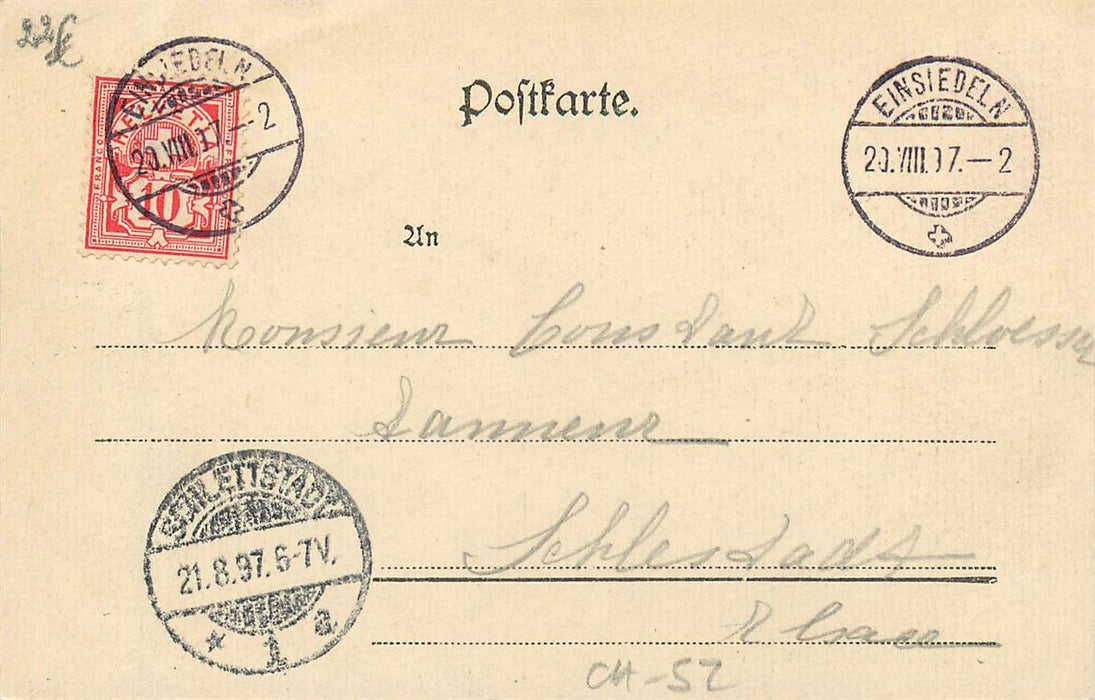 22€
EINSIEDELN
20.VIII.97.–2
HELVETIA
FRANCO
10
Postkarte.
EINSIEDELN
20.VIII.97.–2
An
Monsieur Constant Schloesser
Tanneur
Schlestadt
Elsace
SCHLETTSTADT
21.8.97.6-7V.
* 1 a
CH-52